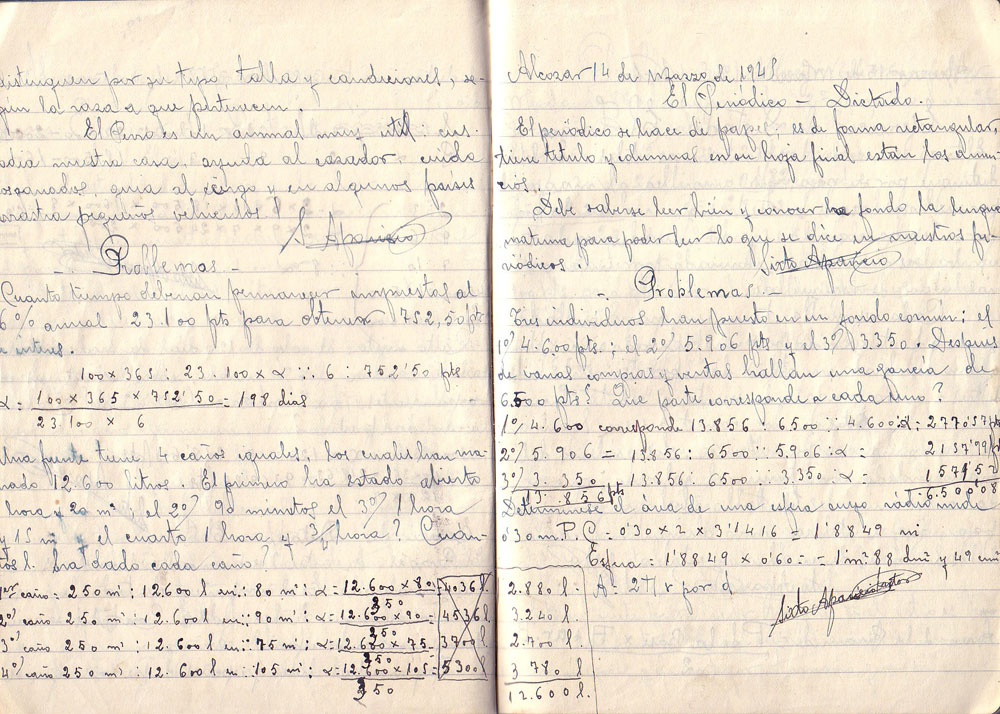 distinguen por su tipo, talla y condiciones, se-
gún la raza a que pertenecen.
El Perro es un animal muy util: cus-
odia nuestra casa, ayuda al cazador, cuida
os ganados, guia al ciego y en algunos países
arrastra pequeños vehiculos.
S. Aparicio
- Problemas -
Cuanto tiempo deberan permanecer impuestas al
6% anual 23.100 pts para obtener 752,50 pts
e interes.
100 x 365 : 23.100 x α :: 6 : 752'50 pts
α = 100 x 365 x 752'50 = 198 dias
23.100 x 6
Una fuente tiene 4 caños iguales, los cuales han ma-
nado 12.600 litros. El primero ha estado abierto
1 hora y 20 mⁱ; el 2º/ 90 minutos el 3º/ 1 hora
y 15 mⁱ y el cuarto 1 hora y 3/4 hora? Cuán-
tos l. ha dado cada caño?
1er caño = 250 mⁱ : 12.600 l :: 80 mⁱ : α = 12.600 x 80 = 4036 l.
350
2º/ caño 250 mⁱ : 12.600 l :: 90 mⁱ : α = 12.600 x 90 = 4536 l.
350
3º/ caño 250 mⁱ : 12.600 l :: 75 mⁱ : α = 12.600 x 75 = 3700 l.
350
4º/ caño 250 mⁱ : 12.600 l :: 105 mⁱ : α = 12.600 x 105 = 5300 l.
350
Alcozar 14 de Marzo de 1945
El Periódico - Dictado.
El periódico se hace de papel; es de forma rectangular
tiene titulo y columnas en su hoja final estan los anun-
cios.
Debe saberse leer bien y conocer ha fondo la lengua
materna para poder leer lo que se dice en nuestros pe-
riódicos.
Sixto Aparicio
- Problemas -
Tres individuos han puesto en un fondo común; el
1º/ 4.600 pts.; el 2º/ 5.906 pts y el 3º/ 3.350. Despues
de varias compras y ventas hallan una gancia de
6.500 pts? Que parte corresponde a cada uno?
1º/ 4.600 corresponde 13.856 : 6500 :: 4.600 : α = 2770'57 pts
2º/ 5.906 = 13.856 : 6500 :: 5.906 : α = 2157'99 pts
3º/ 3.350 = 13.856 : 6500 :: 3.350 : α = 1571'52
13.856 pts 6.500'08
Determinese el área de una esfera cuyo rádio mide
0'30 m. P.C = 0'30 x 2 x 3'1416 = 1'8849 m
Esfera = 1'8849 x 0'60 = 1 m² 88 dm² y 49 cm²
2.880 l. A = 2π r por d
3.240 l.
2.700 l.
3 780 l.
12.600 l.
Sixto Aparicio